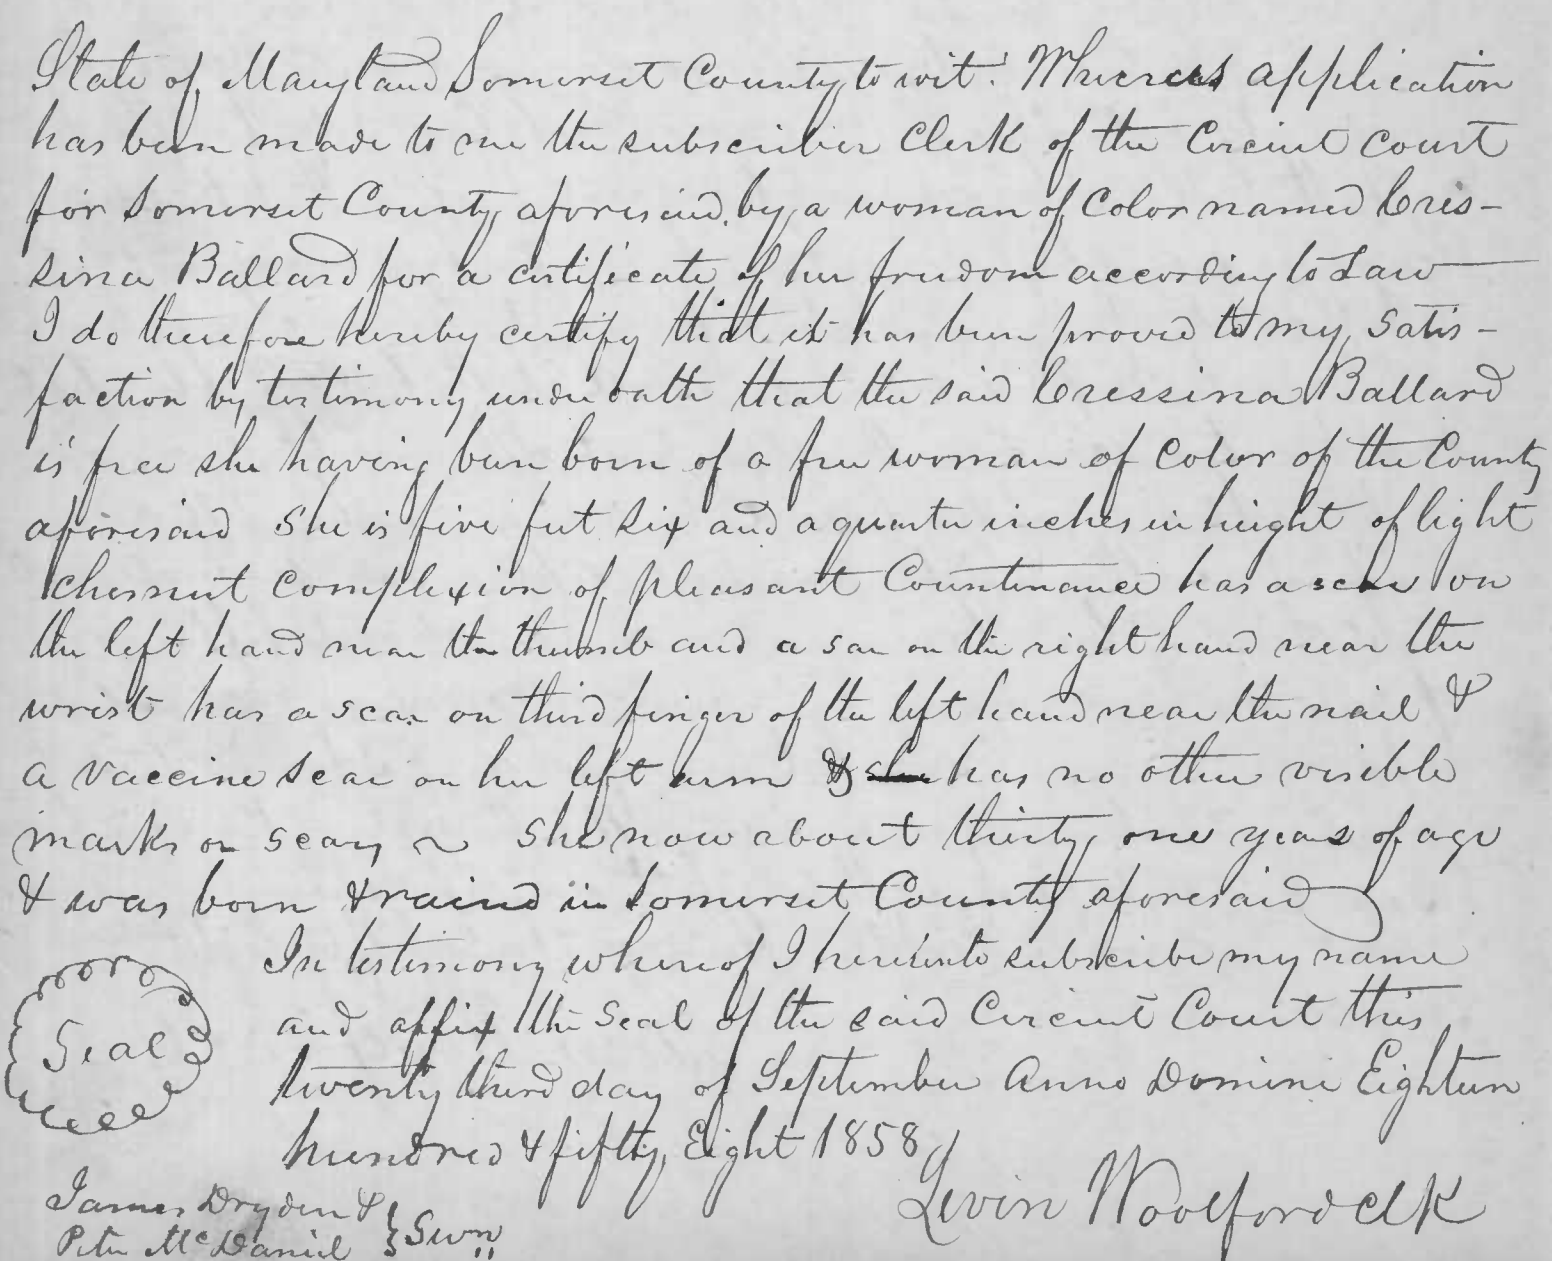 State of Maryland Somerset County to wit. Whereas application
has been made to me the subscriber Clerk of the Circuit Court
for Somerset County aforesaid, by a woman of Color named Cres-
sina Ballard for a certificate of her freedom according to Law
I do therefore hereby certify that it has been proved to my Satis-
faction by testimony under oath that the said Cressina Ballard
is free she having been born of a free woman of Color of the County
aforesaid She is five feet six and a quarter inches in height of light
chesnut complexion of pleasant Countenance has a scar on
the left hand near the thumb and a scar on the right hand near the
wrist has a scar on third finger of the left hand near the nail &
a vaccine scar on her left arm & she has no other visible
marks or scars ~ She now about thirty one years of age
& was born & raised in Somerset County aforesaid
In testimony whereof I hereunto subscribe my name
and affix the Seal of the said Circuit Court this
twenty third day of September Anno Domini Eighteen
hundred & fifty Eight 1858
Seal
Levin Woolford Clk
James Dryden &
Peter McDaniel } Swn